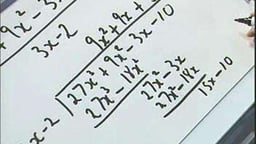 +9x² - 3x
3x-2
9x²+9x+
x-2 27x³+9x²-3x-10
27x³-18x²
27x²-3x
27x²-18x
15x-10